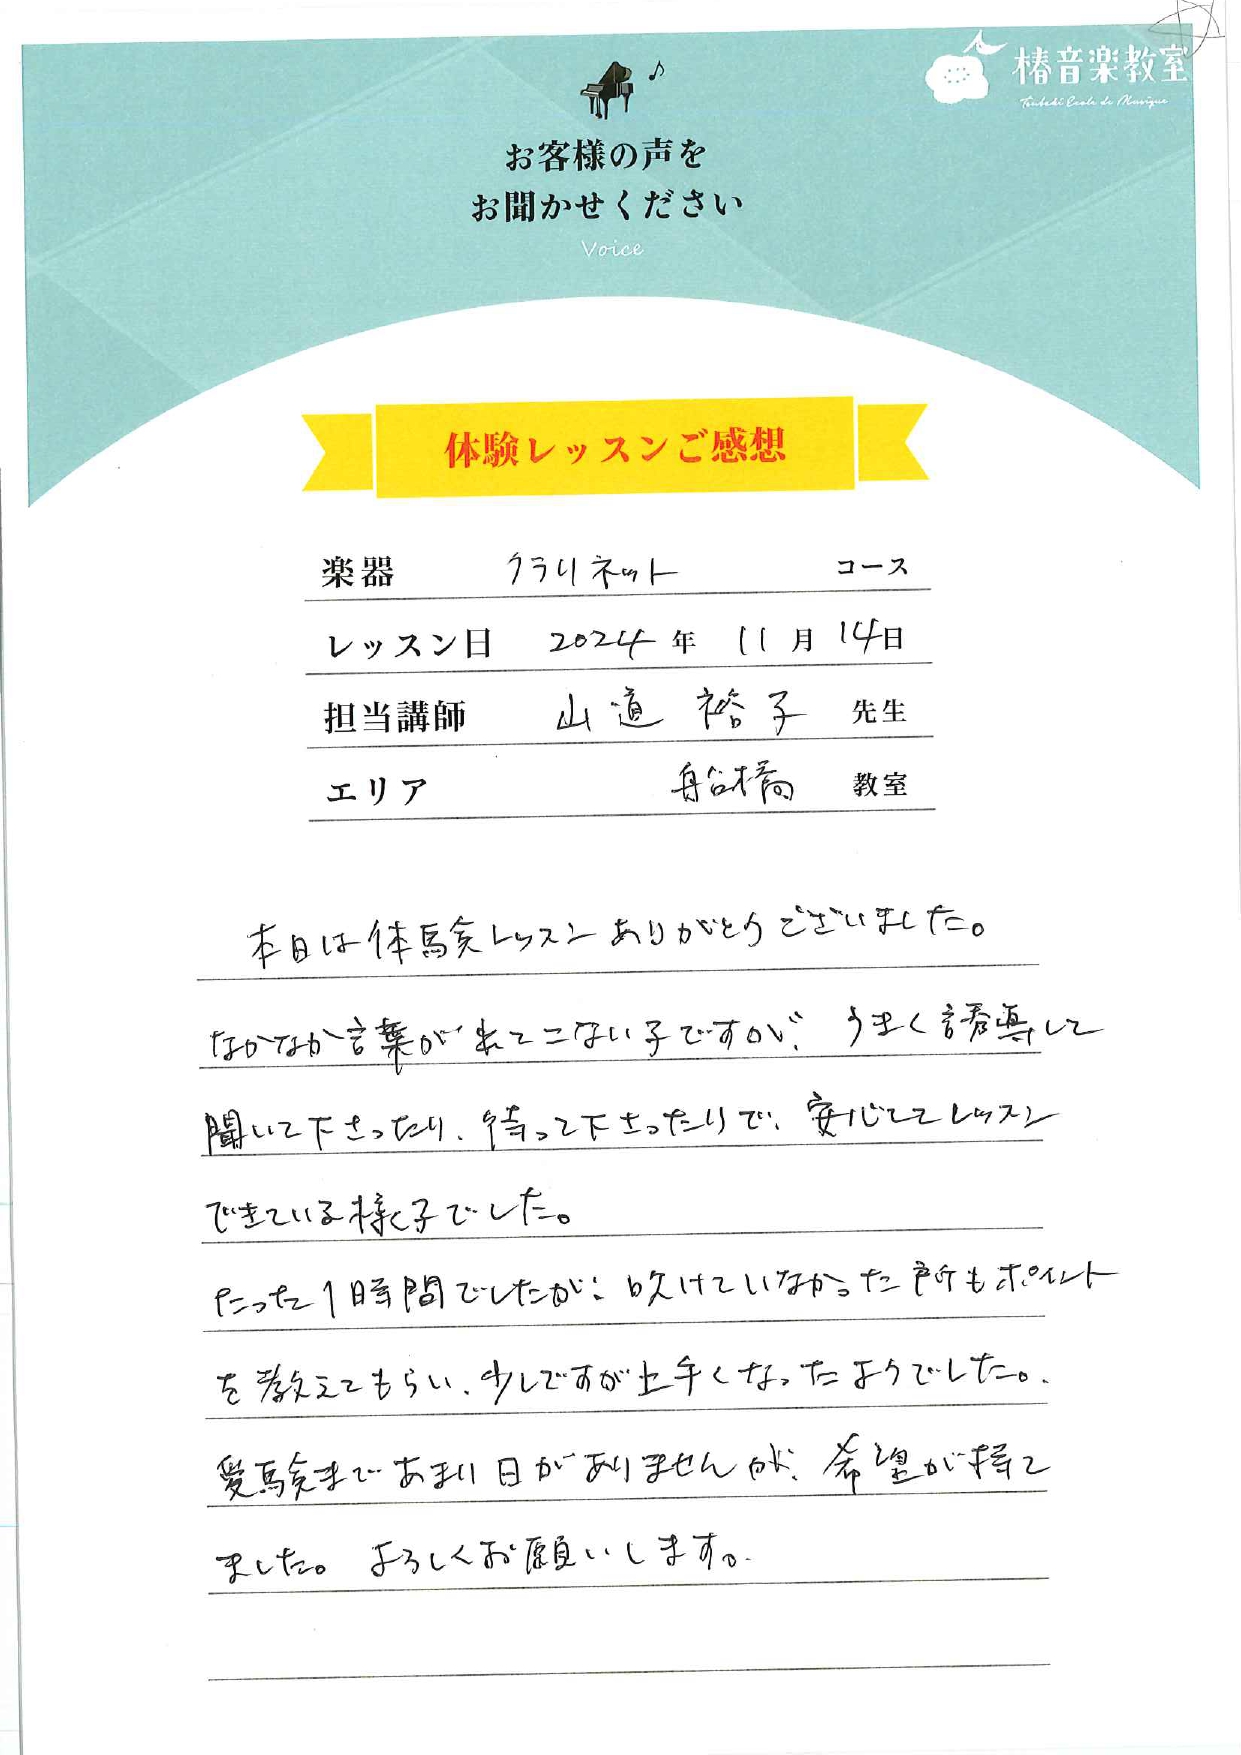 椿音楽教室
Tsubaki Ecole de Musique
お客様の声を
お聞かせください
Voice
体験レッスンご感想
楽器 クラリネット コース
レッスン日 2024年 11月 14日
担当講師 山道 裕子 先生
エリア 船橋 教室
本日は体験レッスンありがとうございました。
なかなか言葉が出てこない子ですが、うまく誘導して
聞いて下さったり、待って下さったりで、安心してレッスン
できている様子でした。
たった1時間でしたが、吹けていなかった所もポイント
を教えてもらい、少しですが上手くなったようでした。
受験まであまり日がありませんが、希望が持て
ました。よろしくお願いします。